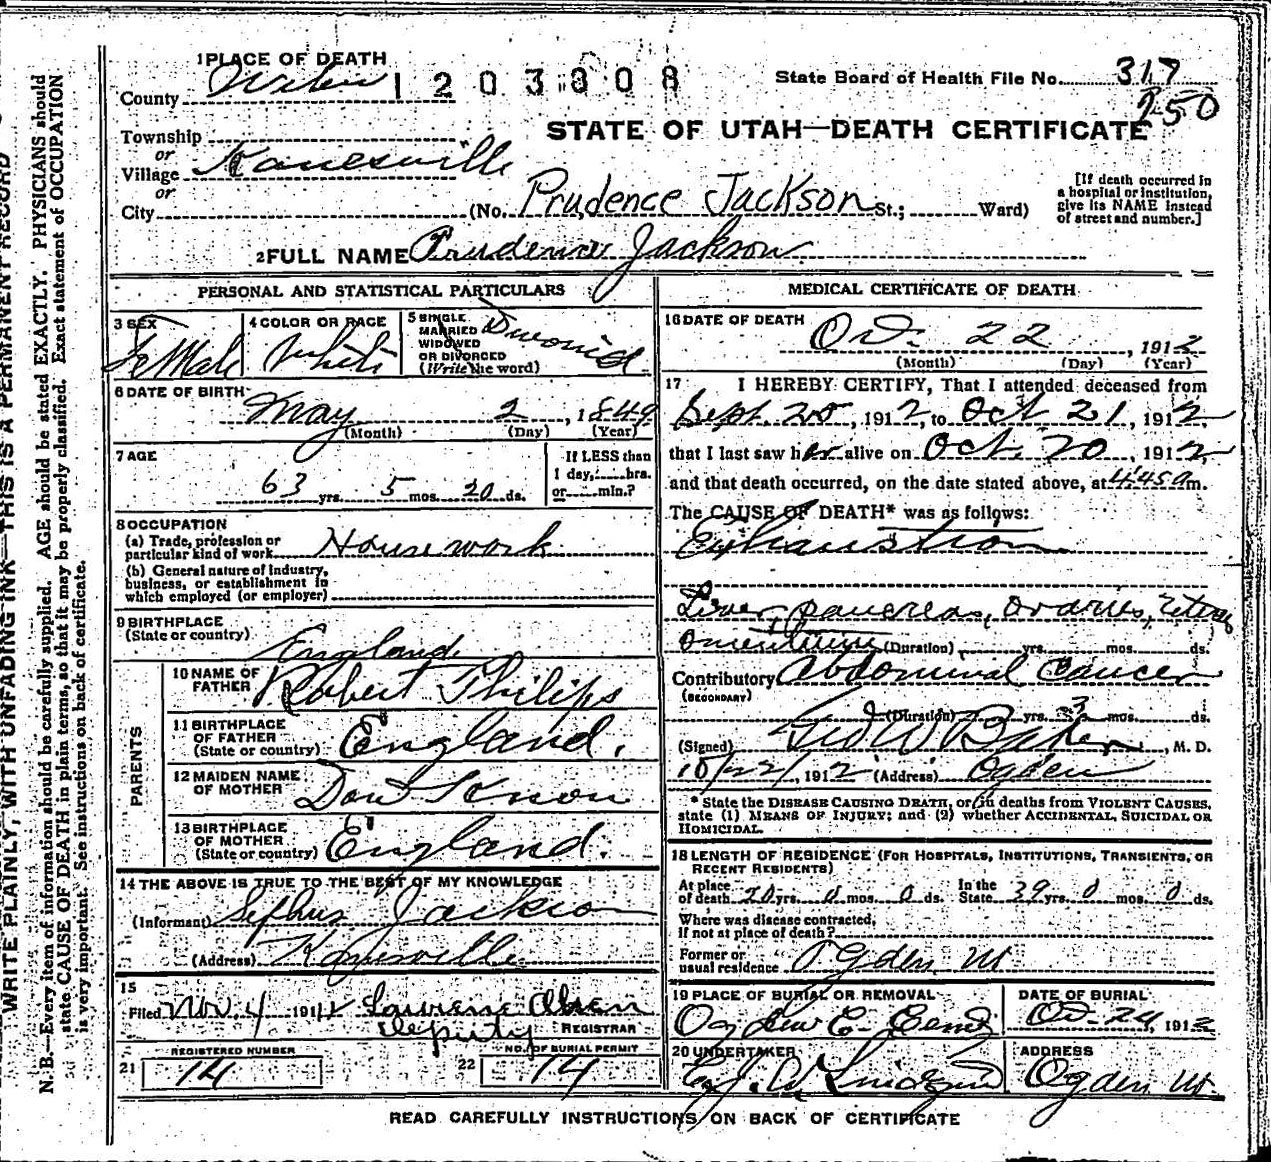 1 PLACE OF DEATH
County Weber
1203808
State Board of Health File No. 317
250
STATE OF UTAH—DEATH CERTIFICATE
Township
or
Village Kanesville
or
City (No. Prudence Jackson St.; Ward)
[If death occurred in a hospital or institution, give its NAME instead of street and number.]
2 FULL NAME Prudence Jackson
PERSONAL AND STATISTICAL PARTICULARS
3 SEX FeMale
4 COLOR OR RACE White
5 SINGLE MARRIED WIDOWED OR DIVORCED (Write the word) Divorced
6 DATE OF BIRTH May 2, 1849
(Month) (Day) (Year)
7 AGE 63 yrs. 5 mos. 20 ds.
If LESS than 1 day, hrs. or min.?
8 OCCUPATION
(a) Trade, profession or particular kind of work Housework
(b) General nature of industry, business, or establishment in which employed (or employer)
9 BIRTHPLACE (State or country) England
PARENTS
10 NAME OF FATHER Robert Philips
11 BIRTHPLACE OF FATHER (State or country) England.
12 MAIDEN NAME OF MOTHER Don't Know
13 BIRTHPLACE OF MOTHER (State or country) England.
14 THE ABOVE IS TRUE TO THE BEST OF MY KNOWLEDGE
(Informant) Jackson
(Address) Kanesville
15
Filed Nov. 4 1912 Laurene
Deputy REGISTRAR
REGISTERED NUMBER
21 14
NO. OF BURIAL PERMIT
22 14
MEDICAL CERTIFICATE OF DEATH
16 DATE OF DEATH Oct. 22, 1912
(Month) (Day) (Year)
17 I HEREBY CERTIFY, That I attended deceased from
Sept. 20, 1912, to Oct 21, 1912,
that I last saw her alive on Oct. 20, 1912,
and that death occurred, on the date stated above, at 4:45 a m.
The CAUSE OF DEATH* was as follows:
Exhaustion
Liver, pancreas, ovaries, uterus
omentum (Duration) yrs. mos. ds.
Contributory Abdominal Cancer
(SECONDARY)
(Duration) yrs. 3 mos. ds.
(Signed) Geo W Baker, M. D.
10/22/, 1912 (Address) Ogden
* State the DISEASE CAUSING DEATH, or, in deaths from VIOLENT CAUSES, state (1) MEANS OF INJURY; and (2) whether ACCIDENTAL, SUICIDAL OR HOMICIDAL.
18 LENGTH OF RESIDENCE (FOR HOSPITALS, INSTITUTIONS, TRANSIENTS, OR RECENT RESIDENTS)
At place of death 20 yrs. 0 mos. 0 ds. In the State 39 yrs. 0 mos. 0 ds.
Where was disease contracted, If not at place of death?
Former or usual residence Ogden Ut
19 PLACE OF BURIAL OR REMOVAL
Ogden C. Cem
DATE OF BURIAL
Oct. 24, 1912
20 UNDERTAKER
ADDRESS
Ogden Ut.
READ CAREFULLY INSTRUCTIONS ON BACK OF CERTIFICATE
WRITE PLAINLY, WITH UNFADING INK—THIS IS A PERMANENT RECORD
N. B.—Every item of information should be carefully supplied. AGE should be stated EXACTLY. PHYSICIANS should
state CAUSE OF DEATH in plain terms, so that it may be properly classified. Exact statement of OCCUPATION
is very important. See instructions on back of certificate.